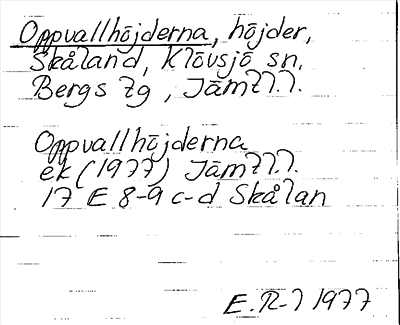 Oppvallhöjderna, höjder,
Skåland, Klövsjö sn,
Bergs tg, Jämtl.l.
Oppvallhöjderna
ek (1977) Jämtl.l.
17 E 8-9 c-d Skålan
E.R-l 1977